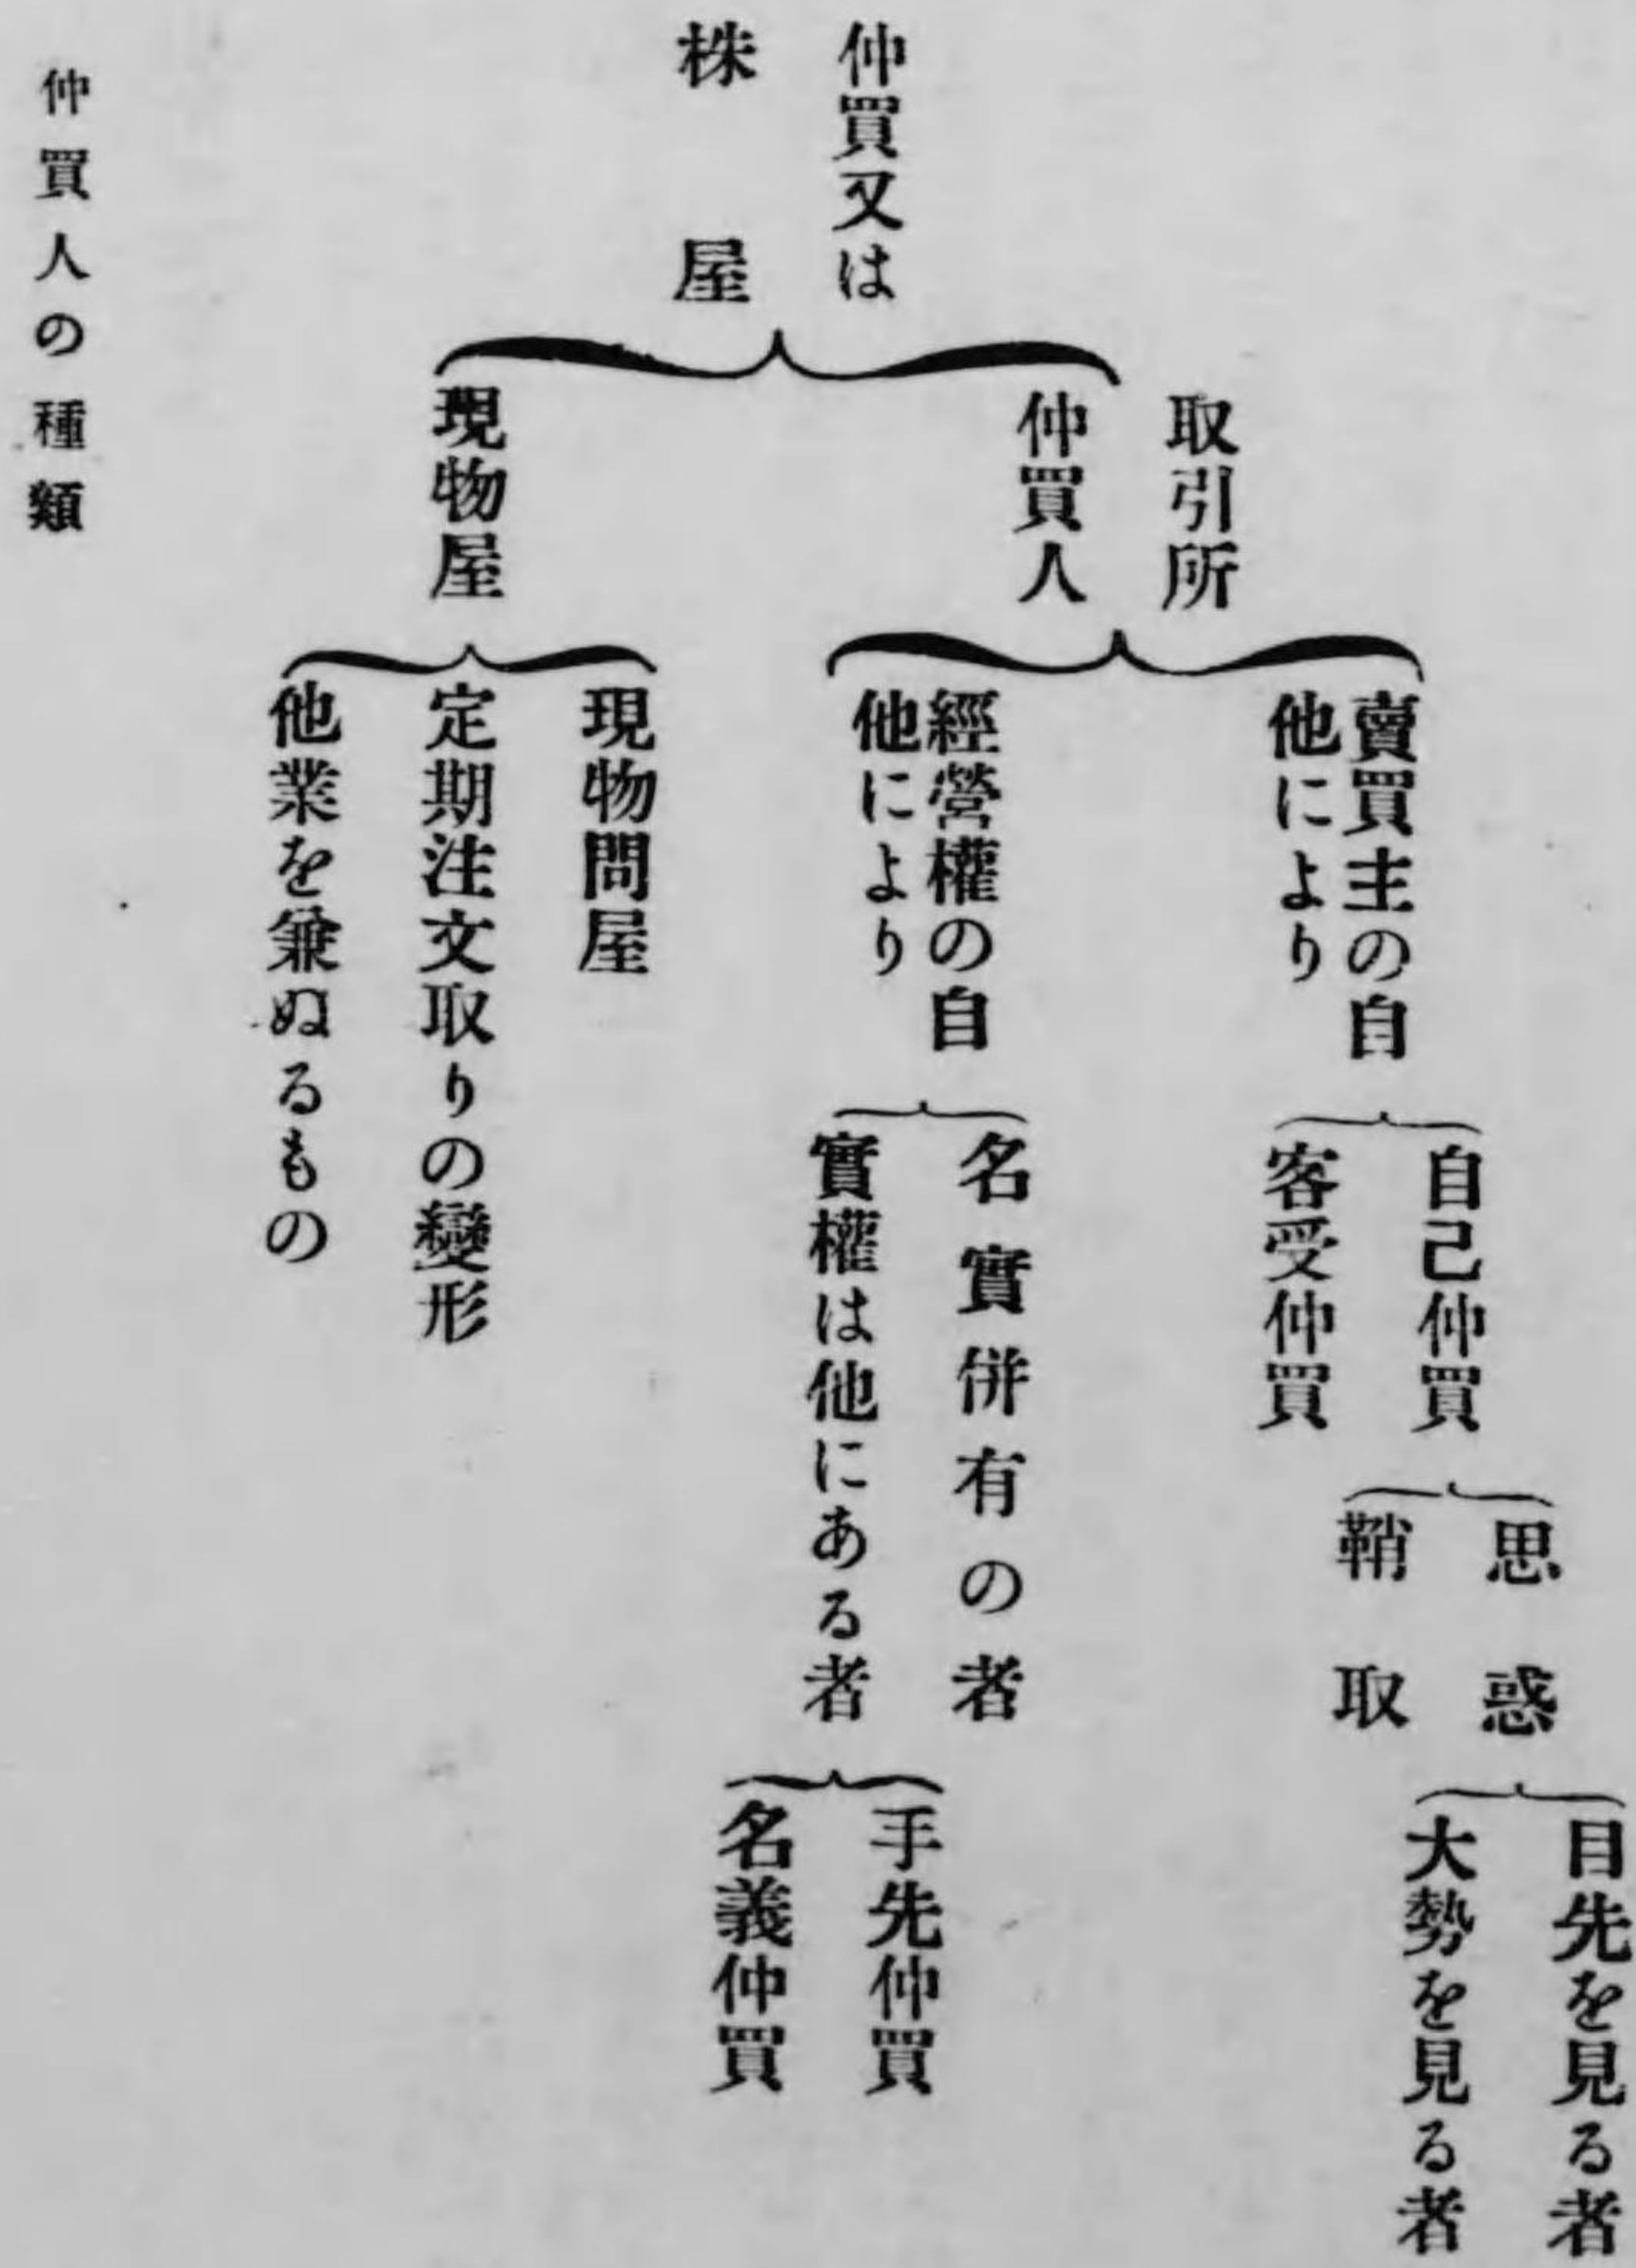 仲買又は
株屋
取引所
仲買人
賣買主の自
他により
自己仲買
思惑
目先を見る者
大勢を見る者
鞘取
客受仲買
經營權の自
他により
名實併有の者
實權は他にある者
手先仲買
名義仲買
現物屋
現物問屋
定期注文取りの變形
他業を兼ぬるもの
仲買人の種類